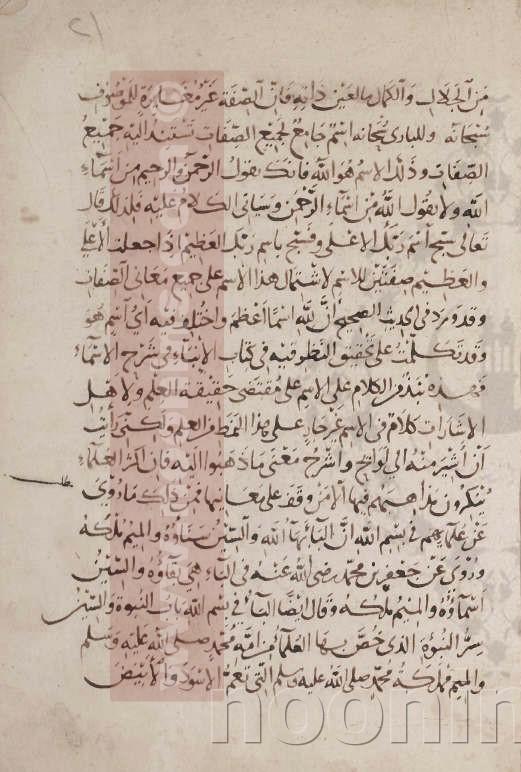 ٢١
من الجلال والكمال بالعين ذاته فان الصفة غير مغايرة للموصوف
سبحانه وللباري سبحانه اسم جامع لجميع الصفات تستند اليه جميع
الصفات وذلك الاسم هو الله فانك تقول الرحمن والرحيم من اسماء
الله ولا تقول الله من اسماء الرحمن وسياتي الكلام عليه فلذلك قال
تعالى سبح اسم ربك الاعلى وفسبح باسم ربك العظيم اذا جعلت الأعلى
والعظيم صفتين للاسم لاشتمال هذا الاسم على جميع معاني الصفات
وقد ورد في الحديث الصحيح أن لله اسما أعظم واختلف فيه اي اسم هو
وقد تكلمت على تحقيق النظر فيه في كتاب الأنباء في شرح الاسماء
فهذه نبذ من الكلام على الاسم على مقتضى حقيقة العلم ولاهل
الاشارات كلام في الاسم غير جار على هذا النمط من العلم ولكنى رأيت
أن أشير منه الى لوائح واشرح معنى ما ذهبوا اليه فان أكثر العلماء
ينكرون مذاهبهم فيها الا من وقف على معانيها فمن ذلك ما روى
طلب
عن علمايهم في بسم الله ان الباء بهاء الله والسين سناؤه والميم ملكه
وروى عن جعفر بن محمد رضى الله عنه في الباء هي بقاؤه والسين
اسماؤه والميم ملكه وقال ايضا الباء في بسم الله باب النبوة والسين
سر النبوة الذى خص بها العلماء من امة محمد صلى الله عليه وسلم
والميم مملكة محمد صلى الله عليه وسلم التي تعم الاسود والأبيض
noonin